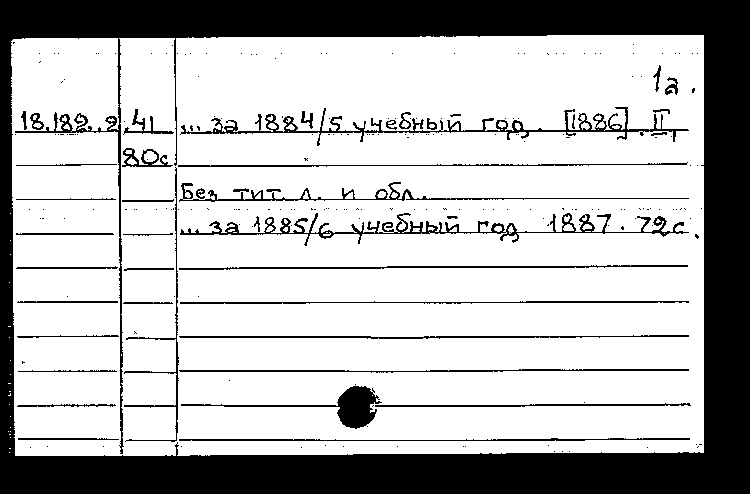 1а.
18.182.2.41 ... за 1884/5 учебный год. [1886]. II,
80с
Без тит. л. и обл.
... за 1885/6 учебный год 1887. 72с.